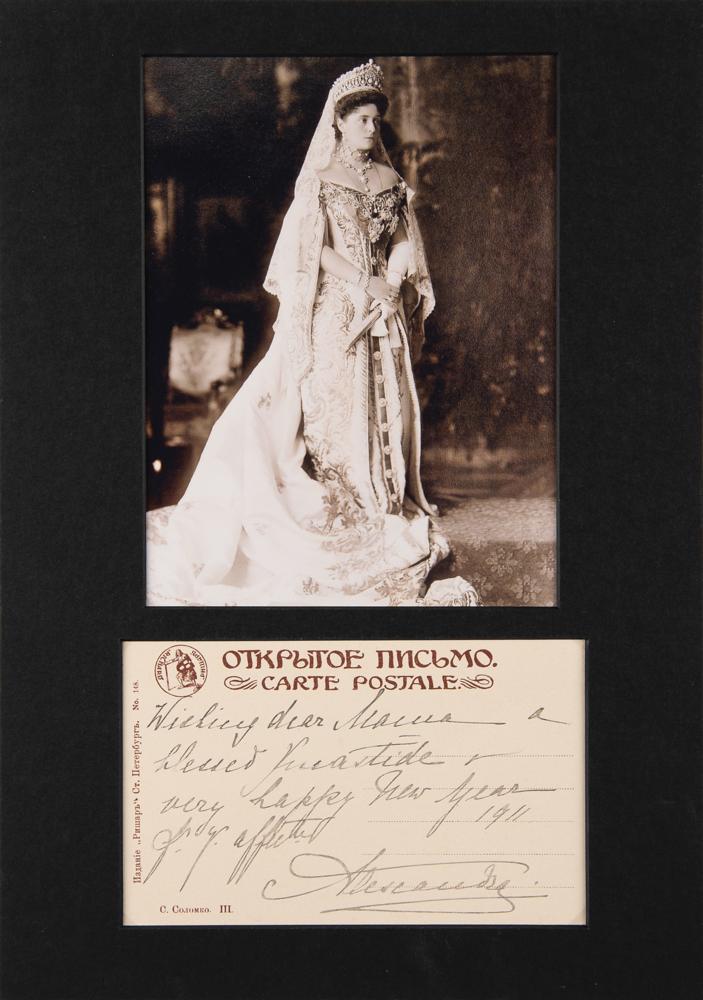 ОТКРЫТОЕ ПИСЬМО.
CARTE POSTALE.
Wishing dear Mama a
blessed Xmastide &
very happy New Year
1911
Alexandra.
Изданіе „Ришаръ“ Ст. Петербургъ. No. 148.
С. Соломко. III.